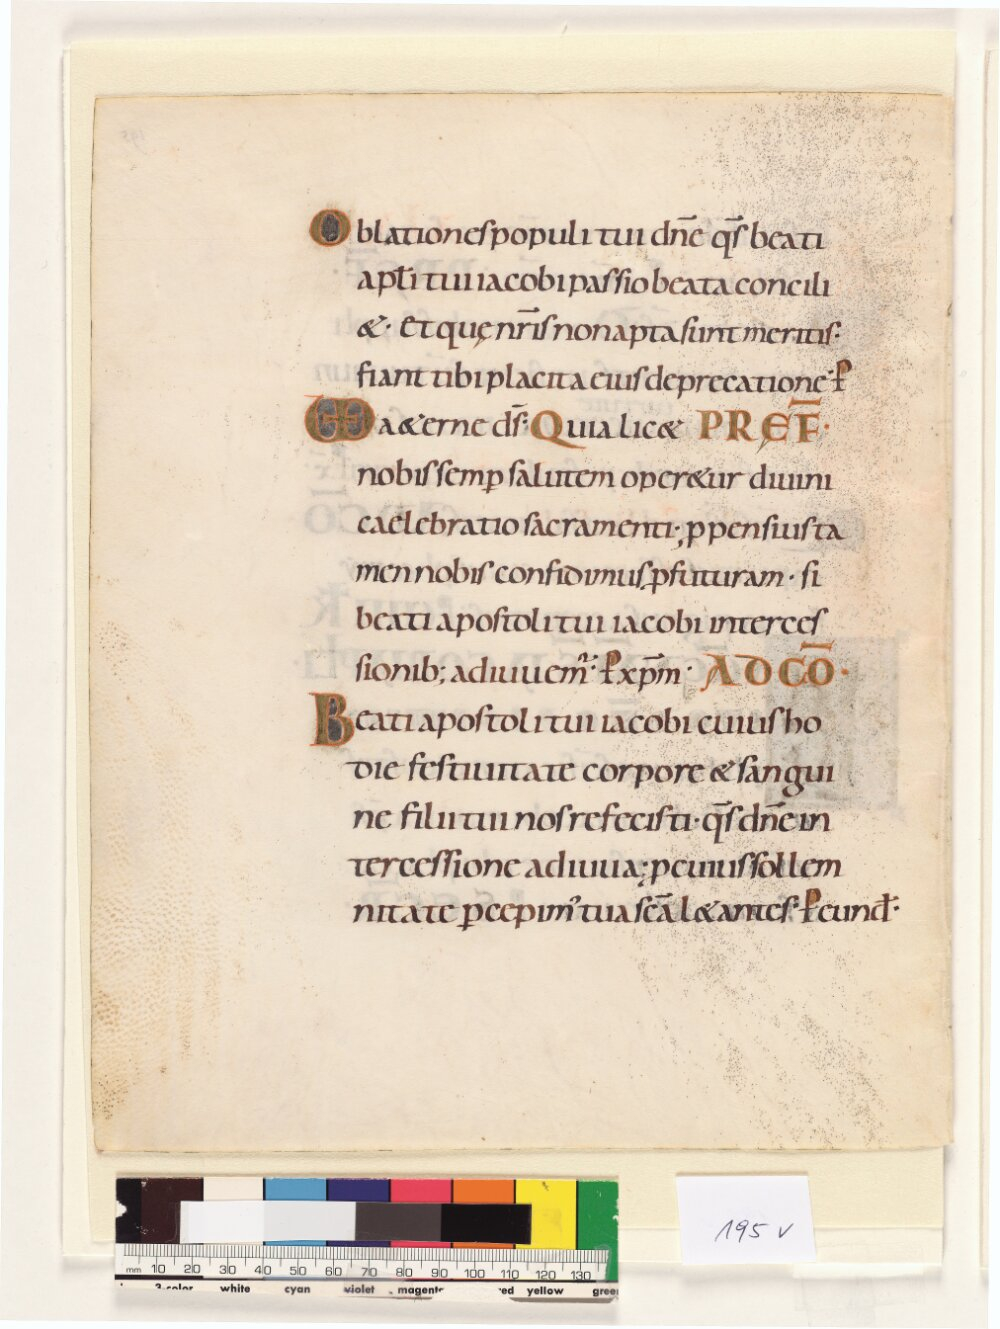 Oblationes populi tui dn̄e qs̄ beati
apl̄i tui iacobi passio beata concili
&· Et quę nr̄is non apta sunt meritis·
fiant tibi placita eius deprecatione· P̲
UD a&erne ds̄· Quia lic& PREF̄·
nobis semp̲ salutem oper&ur diuini
caelebratio sacramenti· p̲pensius ta
men nobis confidimus p̲futuram· si
beati apostoli tui iacobi interces
sionib; adiuuem̄· P̲ xp̄m· AD CŌ·
Beati apostoli tui iacobi cuius ho
die festiuitate corpore & sangui
ne filii tui nos refecisti· qs̄ dn̄e in
tercessione adiuua; p̲ cuius sollem
nitate p̲cepim᷒ tua sc̄a l&antes· P̲ eund̄·
195 v
mm 10 20 30 40 50 60 70 80 90 100 110 120 130
3-color white cyan violet magenta red yellow green